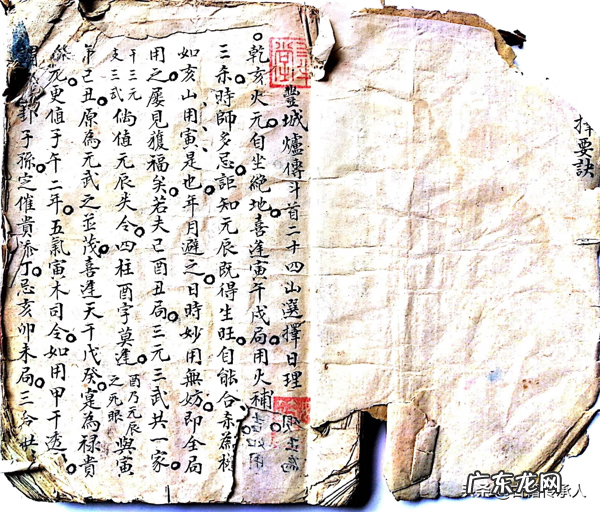 择要訣
豐城爐傳斗首二十四山選擇日理
乾亥火元自坐絶地喜逢寅午戌局用火補
三奈時師多忌詎知元辰既得生旺自能合
如亥山用寅是也年月避之日時妙用無妨即全局
用之屡見獲福矣若夫己酉丑局三元三武共一家
干三元
支三武
倘值元辰失令四柱酉字莫逢
酉乃元辰
之死眼
與寅
第己丑原為元武之並茂喜逢天干戊癸寔為禄貴
元更值子午二年五氣寅木司令如用甲干透
子孫定催貴添丁忌亥卯未局三合
广东龙网
头条
传承人